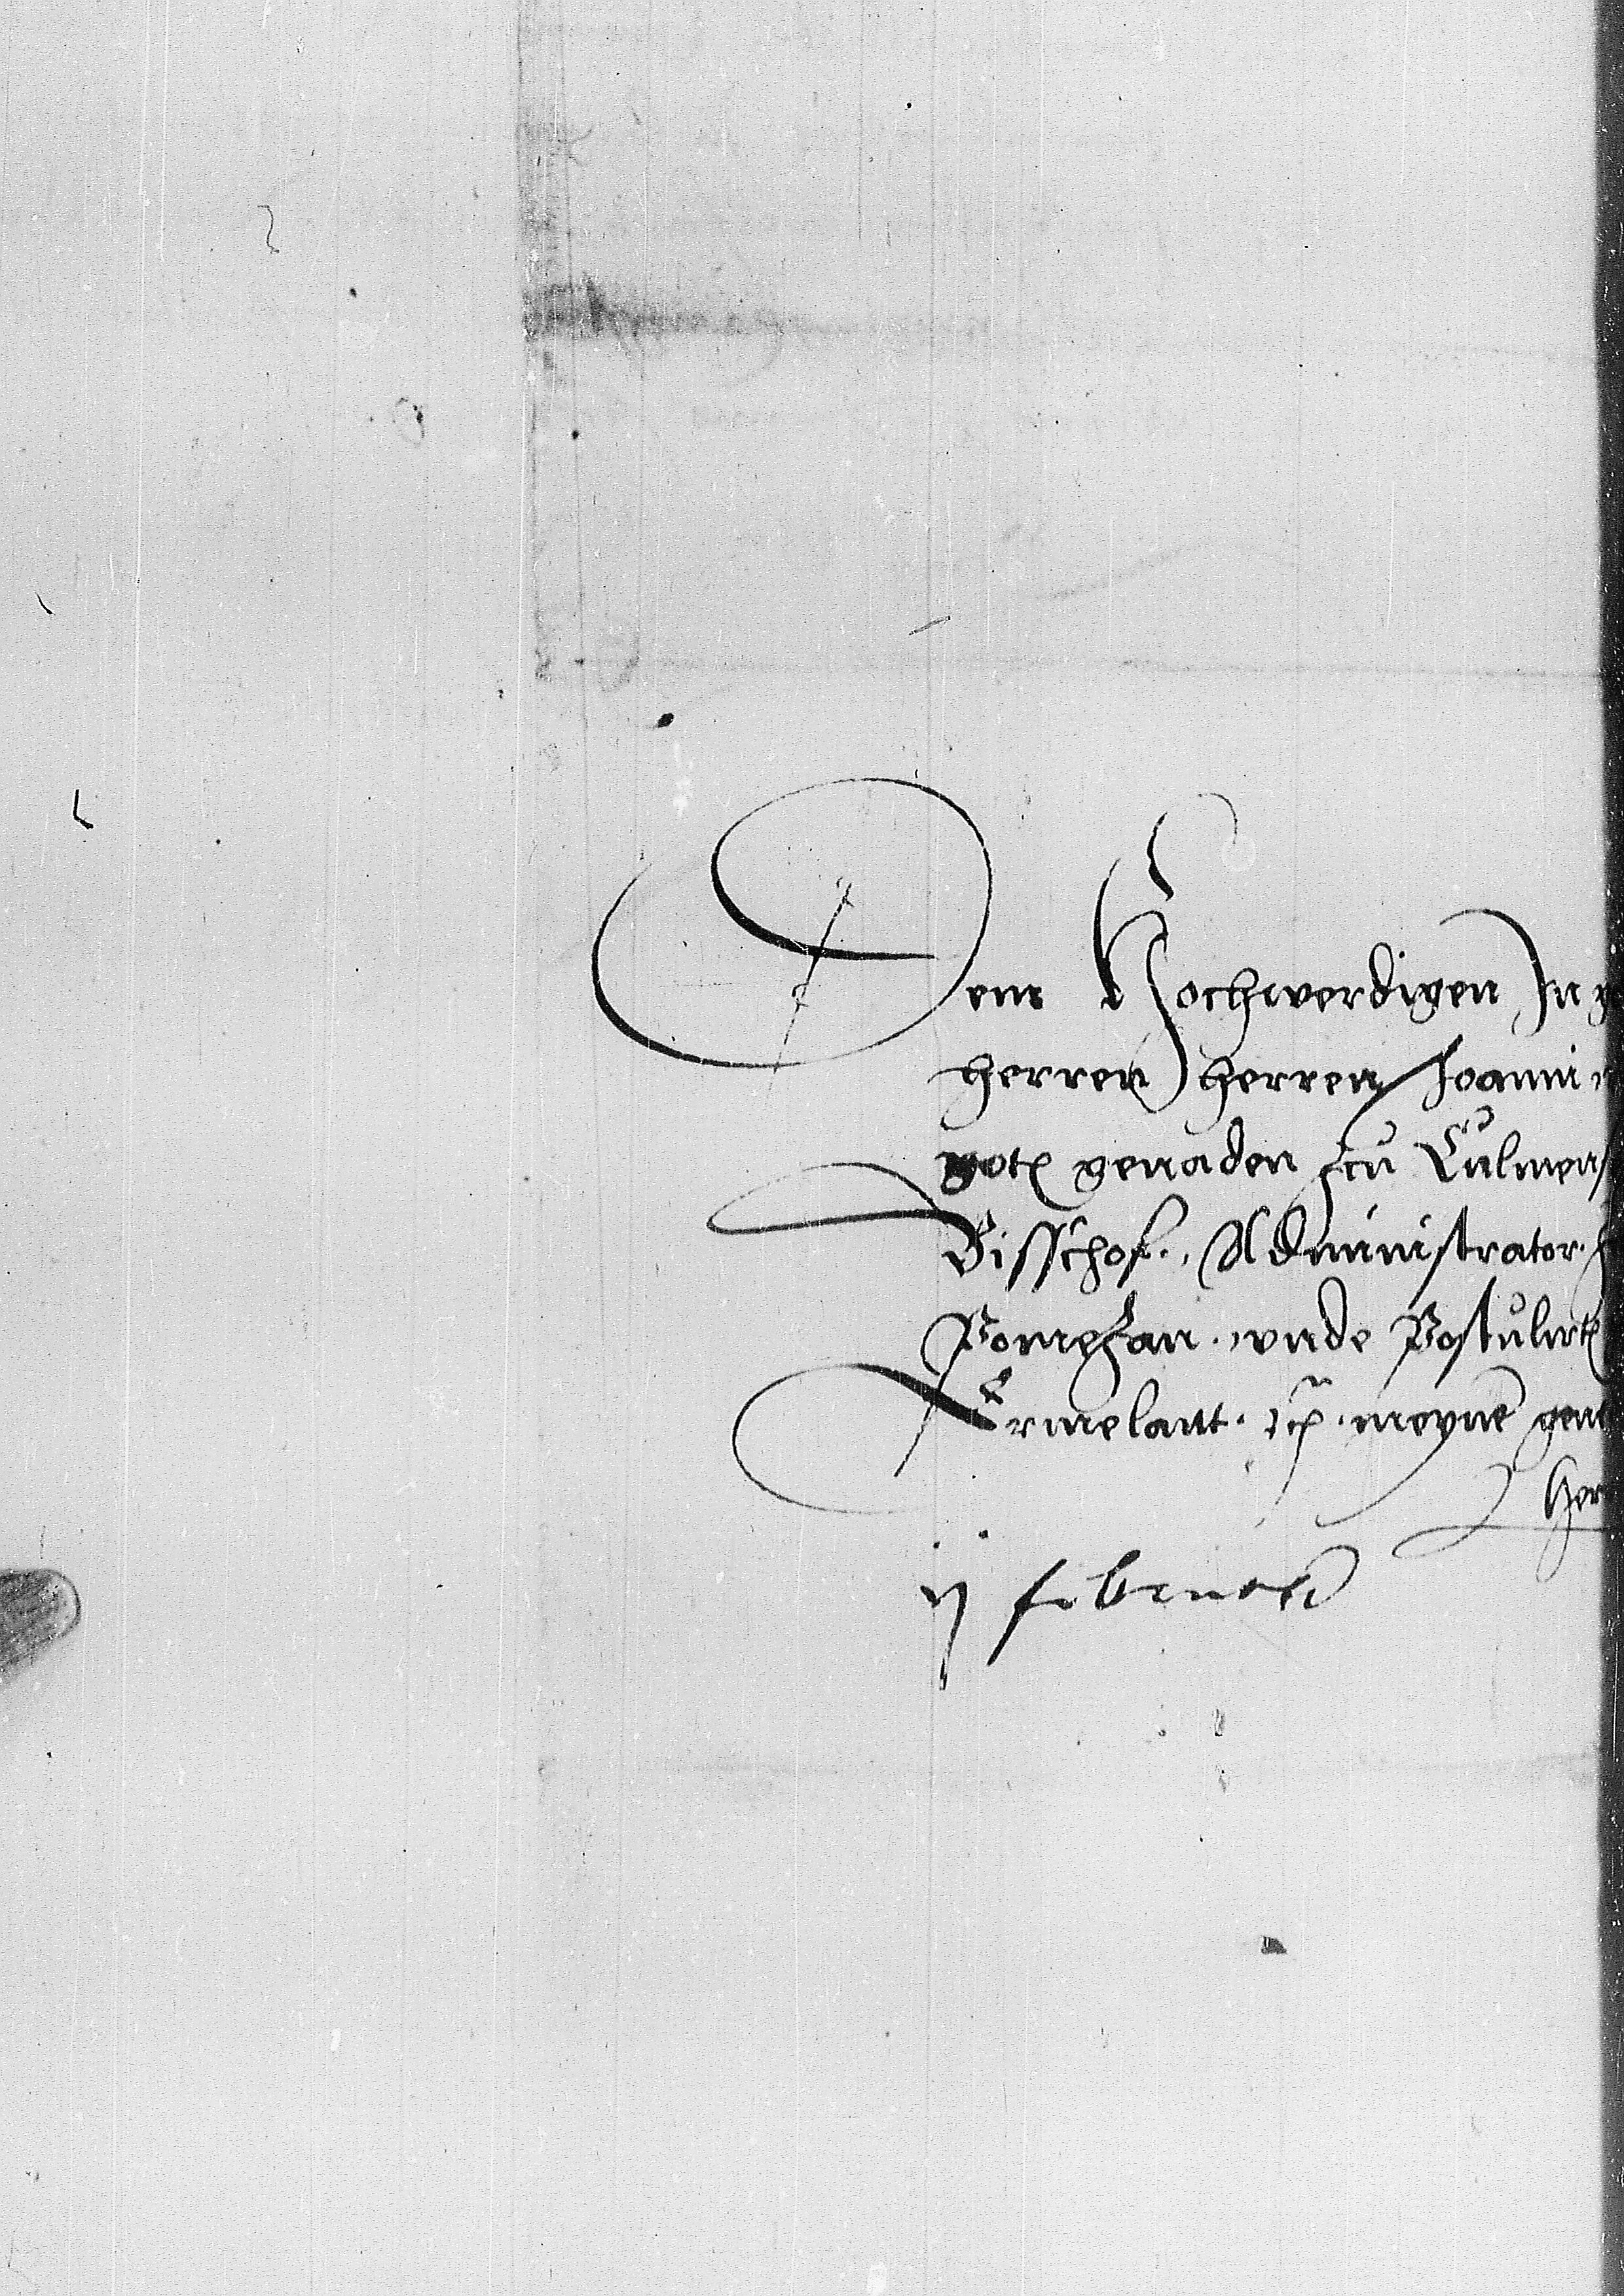 Dem Hochwerdigen In g
herren herren Joanni
gots genaden zcu Culmen
Bisschof. Administrator.
Pomezan. unde Postulirts
Ermelant. etc. meynē gene
Her
ij februarij